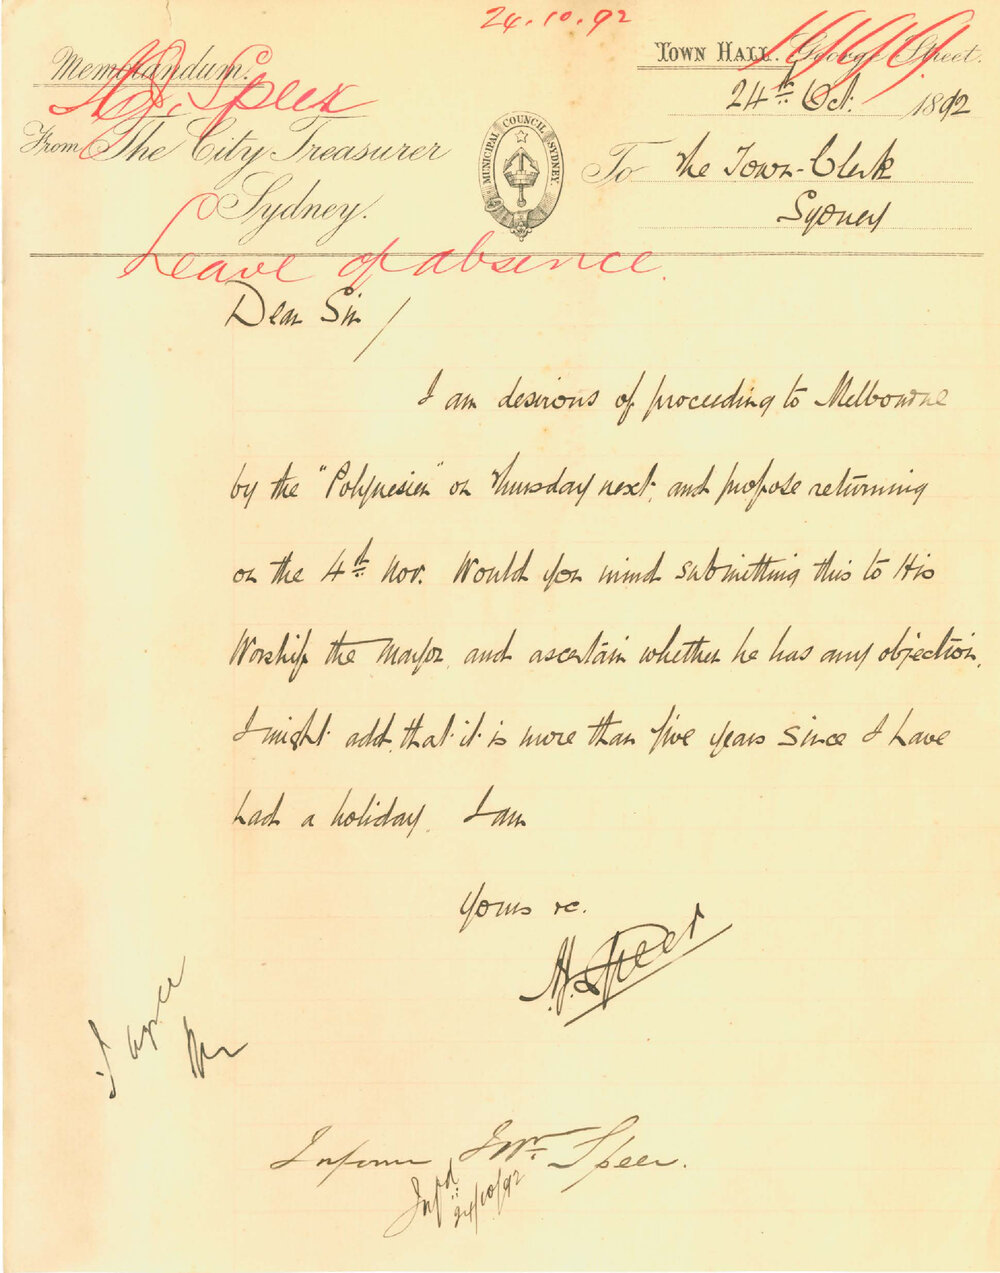 24.10.92
Memorandum.
Town Hall. George Street.
H. Speer
24th Oct. 1892
From The City Treasurer
MUNICIPAL COUNCIL SYDNEY.
To The Town-Clerk
Sydney.
Sydney
Leave of absence.
Dear Sir/
I am desirous of proceeding to Melbourne
by the "Polynesien" on Thursday next, and propose returning
on the 4th Nov. Would you mind submitting this to His
Worship the Mayor, and ascertain whether he has any objection.
I might add, that it is more than five years since I have
had a holiday. I am
Yours &c.
H. Speer
I agree
Inform Mr. Speer.
Infd
24/10/92